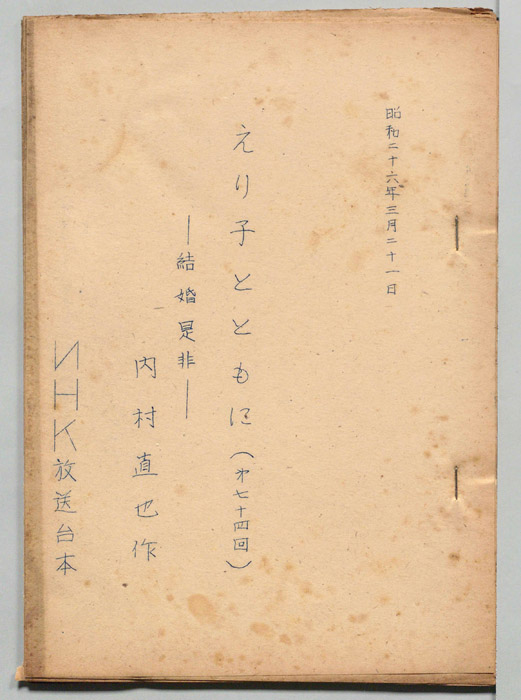 昭和二十六年三月二十一日
えり子とともに(第七十四回)
―結婚是非―
内村直也作
NHK放送台本